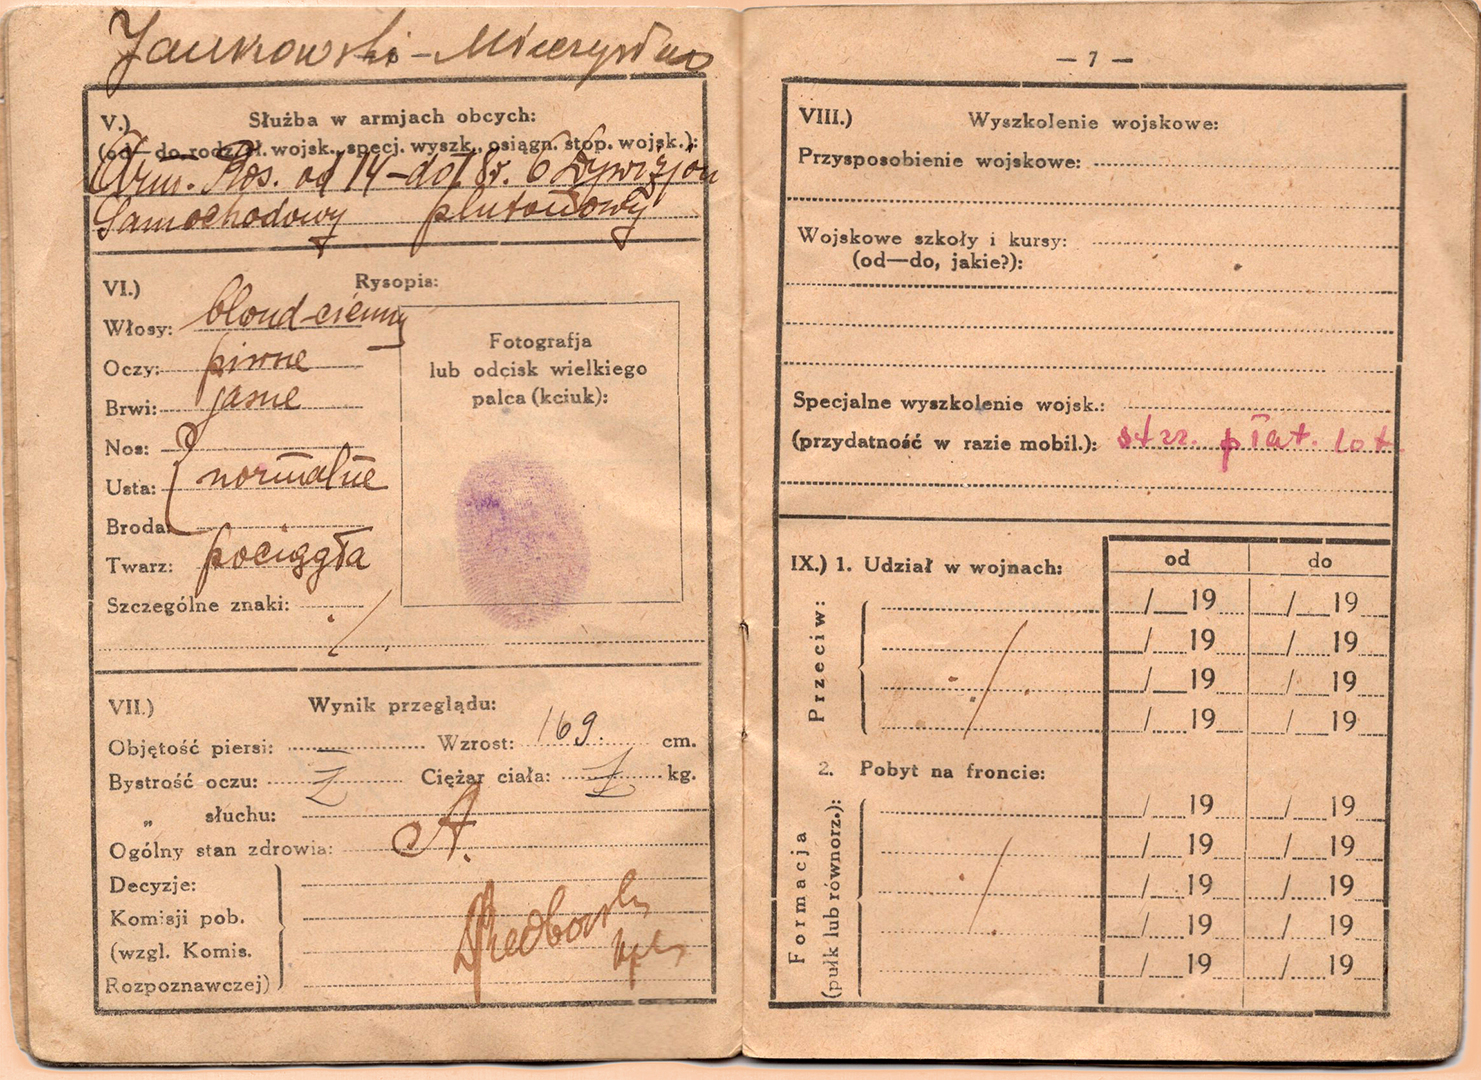 Jankowski - Mieczysław
V.) Służba w armjach obcych:
(od—do, rodzaj. wojsk., specj. wyszk., osiągn. stop. wojsk.):
Arm. Ros. od 14 - do 18 r. 6 Dywizjon
Samochodowy plutonowy
VI.) Rysopis:
Włosy: blond-ciemny
Oczy: piwne
Brwi: jasne
Nos:
Usta: normalne
Broda:
Twarz: pociągła
Szczególne znaki:
Fotografja
lub odcisk wielkiego
palca (kciuk):
VII.) Wynik przeglądu:
Objętość piersi: — Wzrost: 169. cm.
Bystrość oczu: Ciężar ciała: kg.
„ słuchu:
Ogólny stan zdrowia: A.
Decyzje:
Komisji pob.
(wzgl. Komis.
Rozpoznawczej)
— 7 —
VIII.) Wyszkolenie wojskowe:
Przysposobienie wojskowe:
Wojskowe szkoły i kursy:
(od—do, jakie?):
Specjalne wyszkolenie wojsk.:
(przydatność w razie mobil.): strz. płat. lot
IX.) 1. Udział w wojnach: od do
Przeciw:
/ 19 / 19
/ 19 / 19
/ 19 / 19
/ 19 / 19
2. Pobyt na froncie:
Formacja
(pułk lub równorz.):
/ 19 / 19
/ 19 / 19
/ 19 / 19
/ 19 / 19
/ 19 / 19